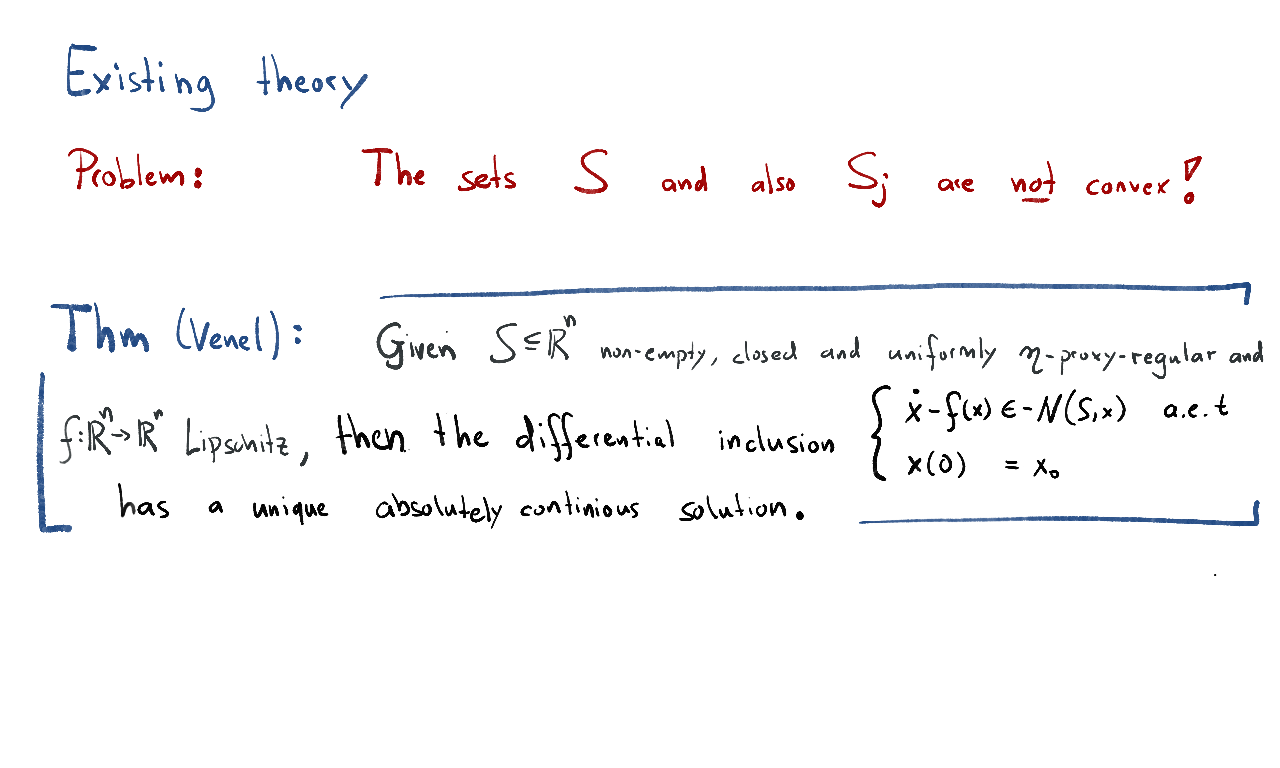 Existing theory
Problem: The sets S and also Sj are not convex!
Thm (Venel): Given S ⊆ ℝⁿ non-empty, closed and uniformly η-proxy-regular and
f: ℝⁿ → ℝⁿ Lipschitz, then the differential inclusion { ẋ - f(x) ∈ -N(S,x) a.e. t
x(0) = x₀
has a unique absolutely continious solution.